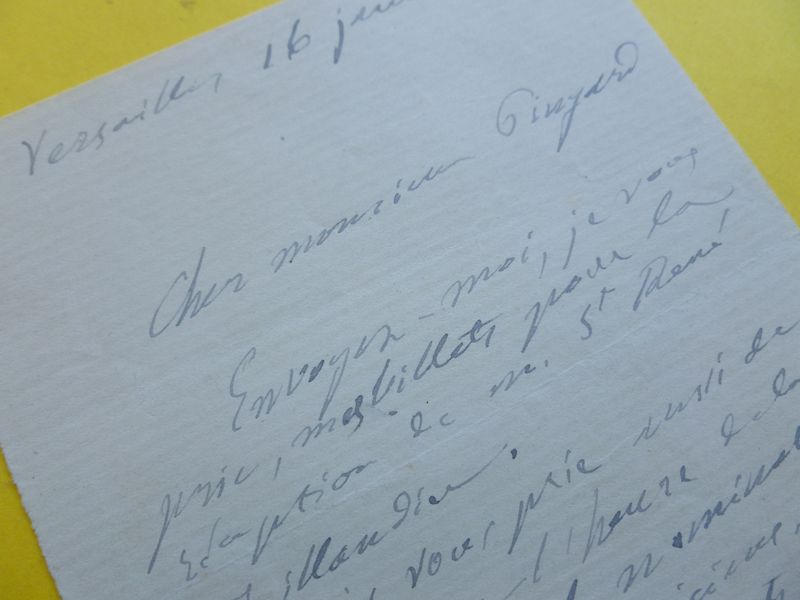 Versailles, 16
Cher monsieur Pingard
Envoyez-moi, je vous
prie, mes billets pour la
réception de m. St René
Taillandier.
vous prie aussi de
l'heure de la